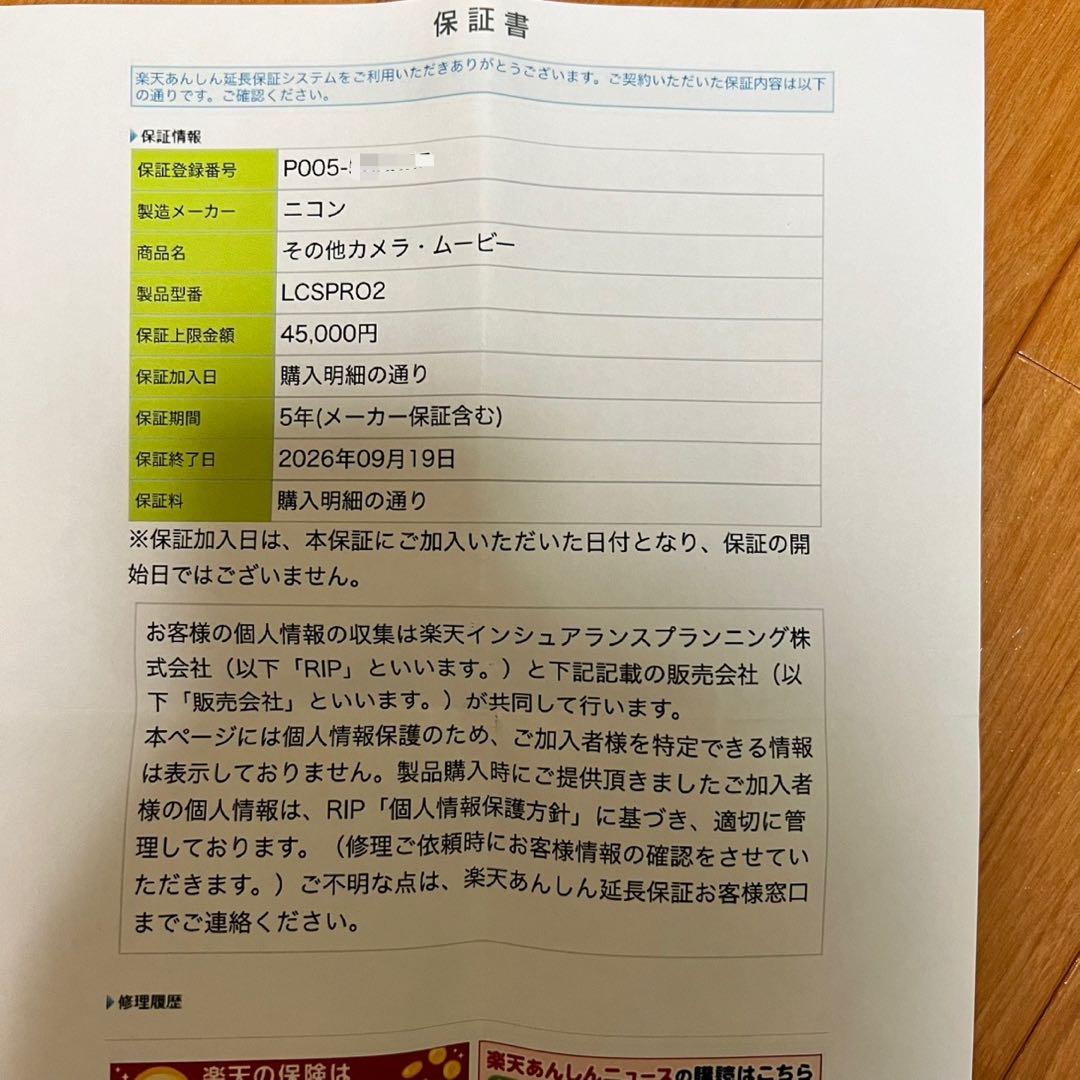 保証書
楽天あんしん延長保証システムをご利用いただきありがとうございます。ご契約いただいた保証内容は以下
の通りです。ご確認ください。
保証情報
保証登録番号 P005-
製造メーカー ニコン
商品名 その他カメラ・ムービー
製品型番 LCSPRO2
保証上限金額 45,000円
保証加入日 購入明細の通り
保証期間 5年(メーカー保証含む)
保証終了日 2026年09月19日
保証料 購入明細の通り
※保証加入日は、本保証にご加入いただいた日付となり、保証の開
始日ではございません。
お客様の個人情報の収集は楽天インシュアランスプランニング株
式会社（以下「RIP」といいます。）と下記記載の販売会社（以
下「販売会社」といいます。）が共同して行います。
本ページには個人情報保護のため、ご加入者様を特定できる情報
は表示しておりません。製品購入時にご提供頂きましたご加入者
様の個人情報は、RIP「個人情報保護方針」に基づき、適切に管
理しております。（修理ご依頼時にお客様情報の確認をさせてい
ただきます。）ご不明な点は、楽天あんしん延長保証お客様窓口
までご連絡ください。
修理履歴
楽天の保険は
楽天あんしんニュースの購読はこちら